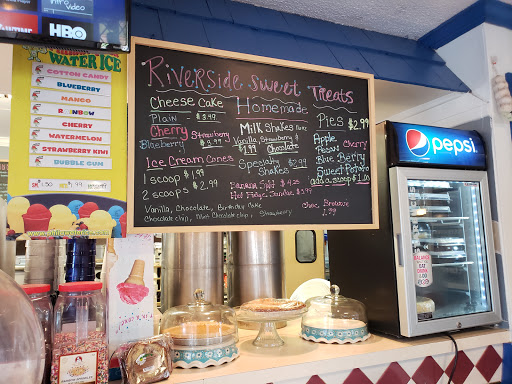 Intro
Video
HBO
WATER ICE
COTTON CANDY
BLUEBERRY
MANGO
RAINBOW
CHERRY
WATERMELON
STRAWBERRY KIWI
BUBBLE GUM
Riverside Sweet Treats
Homemade
Cheese Cake
Plain $3.99
Cherry Strawberry
Blueberry
Ice Cream Cones
1 scoop $1.99
2 scoops $2.99
Milk Shakes
Vanilla, Strawberry &
Chocolate
Specialty $2.99
Shakes
Banana Split
Hot Fudge Sundae
Vanilla, Chocolate, Birthday Cake
Chocolate chip, Mint Chocolate chip, Strawberry
Choc Brownie
2.99
Pies $2.99
Apple Cherry
Pecan
Blue Berry
Sweet Potato
add a scoop
pepsi